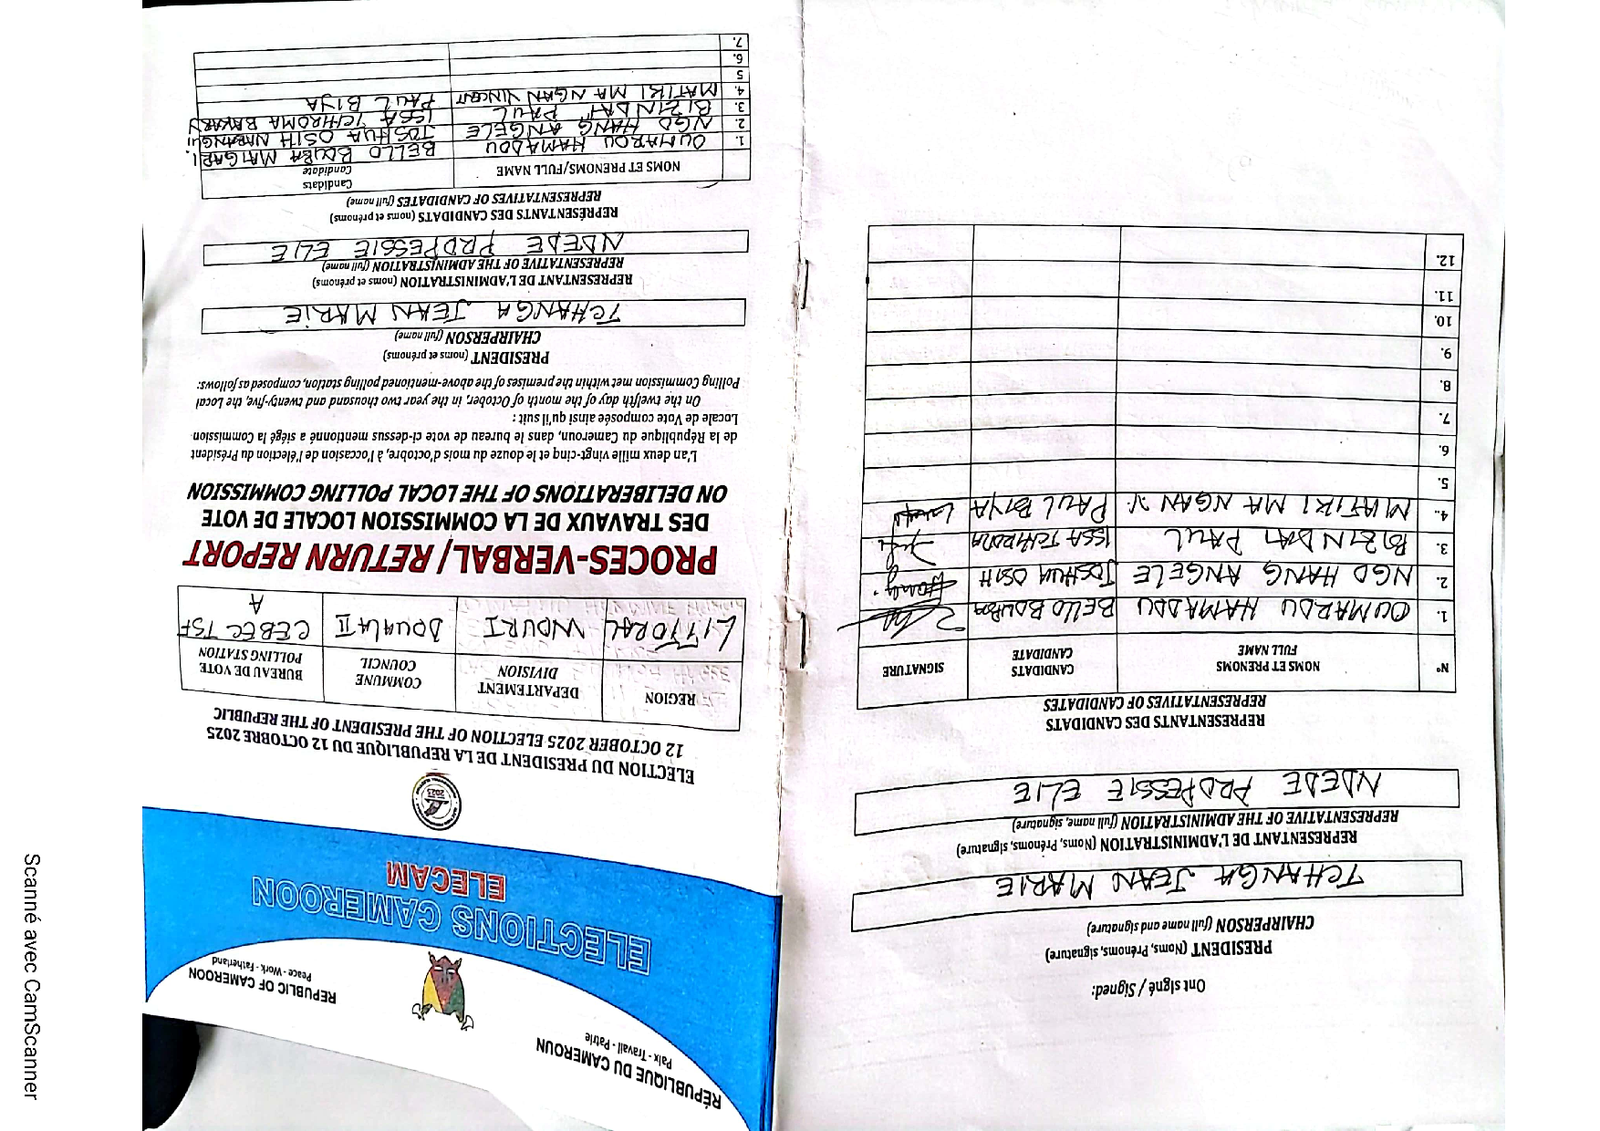 RÉPUBLIQUE DU CAMEROUN
Paix - Travail - Patrie
REPUBLIC OF CAMEROON
Peace - Work - Fatherland
ELECTIONS CAMEROON
ELECAM
ELECTION DU PRESIDENT DE LA REPUBLIQUE DU 12 OCTOBRE 2025
12 OCTOBER 2025 ELECTION OF THE PRESIDENT OF THE REPUBLIC
REGION DEPARTEMENT DIVISION COMMUNE COUNCIL BUREAU DE VOTE POLLING STATION
LITTORAL WOURI DOUALA II CEBEC TSF A
PROCES-VERBAL/ RETURN REPORT
DES TRAVAUX DE LA COMMISSION LOCALE DE VOTE
ON DELIBERATIONS OF THE LOCAL POLLING COMMISSION
L'an deux mille vingt-cinq et le douze du mois d'octobre, à l'occasion de l'élection du Président
de la République du Cameroun, dans le bureau de vote ci-dessus mentionné a siégé la Commission
Locale de Vote composée ainsi qu'il suit :
On the twelfth day of the month of October, in the year two thousand and twenty-five, the Local
Polling Commission met within the premises of the above-mentioned polling station, composed as follows:
PRESIDENT (noms et prénoms)
CHAIRPERSON (full name)
TCHANGA JEAN MARIE
REPRESENTANT DE L'ADMINISTRATION (noms et prénoms)
REPRESENTATIVE OF THE ADMINISTRATION (full name)
NDEDE PROPESSIE ELIE
REPRÉSENTANTS DES CANDIDATS (noms et prénoms)
REPRESENTATIVES OF CANDIDATES (full name)
NOMS ET PRENOMS/FULL NAME Candidats Candidate
1. OUMAROU HAMADOU BELLO BOUBA MAIGARI.
2. NGO HANG ANGELE JOSHUA OSIH NABANGUI
3. BIZINDAI PAUL ISSA TCHIROMA BAKARY
4. MATIKI MA NGAN VINCENT PAUL BIYA
5
6.
7.
Ont signé / Signed:
PRESIDENT (Noms, Prénoms, signature)
CHAIRPERSON (full name and signature)
TCHANGA JEAN MARIE
REPRESENTANT DE L'ADMINISTRATION (Noms, Prénoms, signature)
REPRESENTATIVE OF THE ADMINISTRATION (full name, signature)
NDEDE PROPESSIE ELIE
REPRESENTANTS DES CANDIDATS
REPRESENTATIVES OF CANDIDATES
N° NOMS ET PRENOMS FULL NAME CANDIDATS CANDIDATE SIGNATURE
1. OUMAROU HAMADOU BELLO BOUBA
2. NGO HANG ANGELE JOSHUA OSIH
3. BIZINDAI PAUL ISSA TCHIROMA
4. MATIKI MA NGAN V. PAUL BIYA
5.
6.
7.
8.
9.
10.
11.
12.
Scanné avec CamScanner